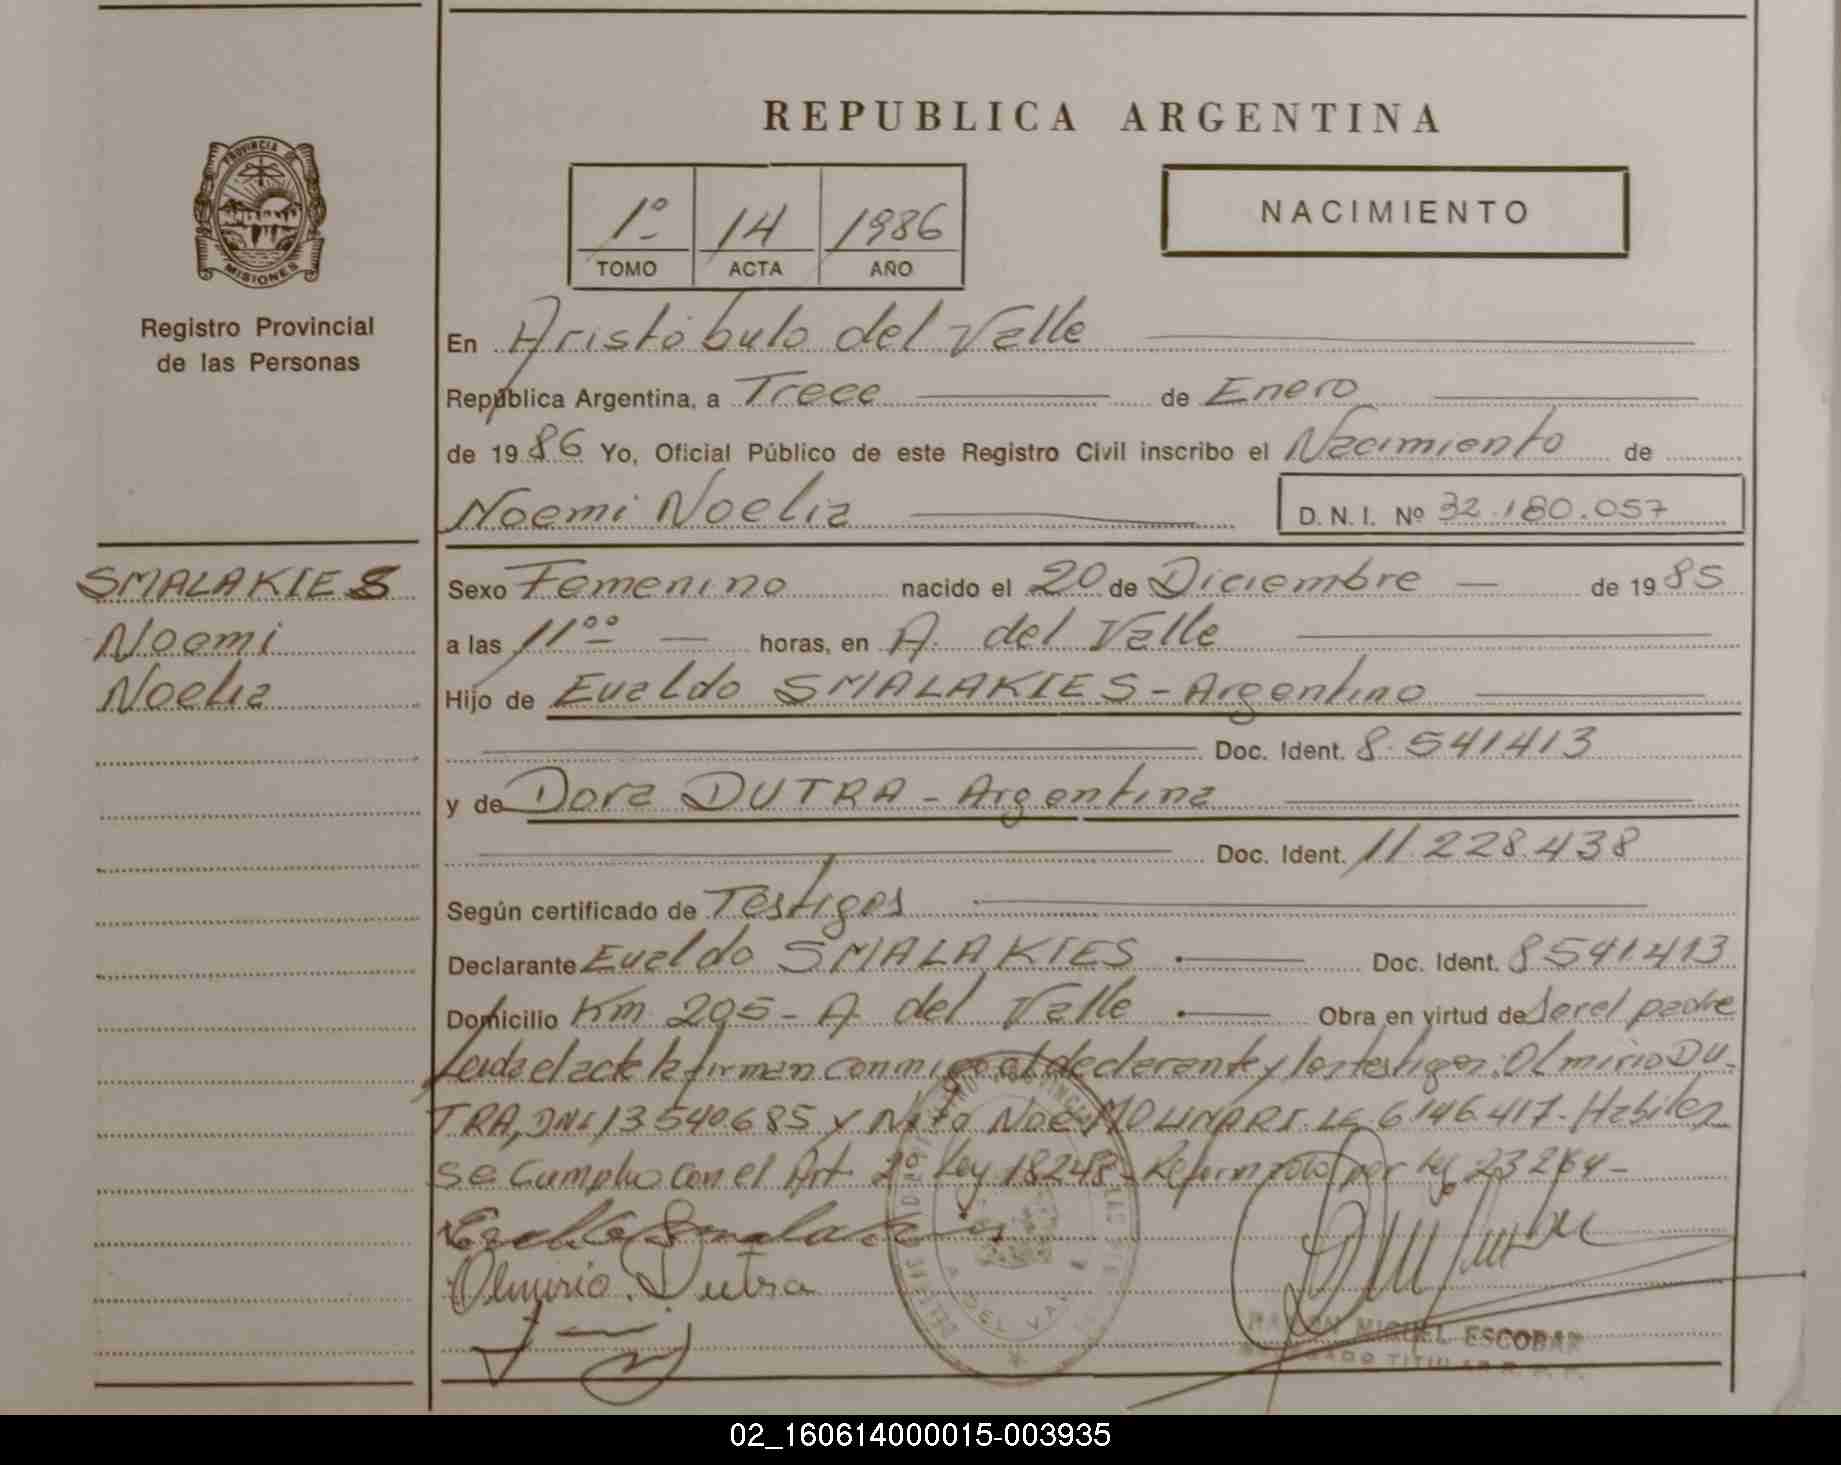 REPUBLICA ARGENTINA
PROVINCIA DE MISIONES
Registro Provincial
de las Personas
1º 14 1986
TOMO ACTA AÑO
NACIMIENTO
En Aristóbulo del Valle
República Argentina, a Trece de Enero
de 1986 Yo, Oficial Público de este Registro Civil inscribo el Nacimiento de
Noemi Noelia D. N. I. Nº 32.180.057
SMALAKIES
Noemi
Noelia
Sexo Femenino nacido el 20 de Diciembre — de 1985
a las 11ºº — horas, en A. del Valle
Hijo de Evaldo SMALAKIES - Argentino
Doc. Ident. 8.541413
y de Dora DUTRA - Argentina
Doc. Ident. 11.228.438
Según certificado de Testigos
Declarante Evaldo SMALAKIES Doc. Ident. 8541413
Domicilio Km 205 - A. del Valle Obra en virtud de ser el padre
Leida el acta la firman conmigo el declarante y los testigos: Olmirio DU-
TRA, DNI 13540685 y Nito Noé MOLINARI. LE 6146.417. Habiles
Se Cumplio con el Art. 2º Ley 18248 - Reformado por ley 23264 -
Olmirio. Dutra
A. DEL VALLE
RAMON MIGUEL ESCOBAR
DELEGADO TITULAR R. P. P.
02_160614000015-003935